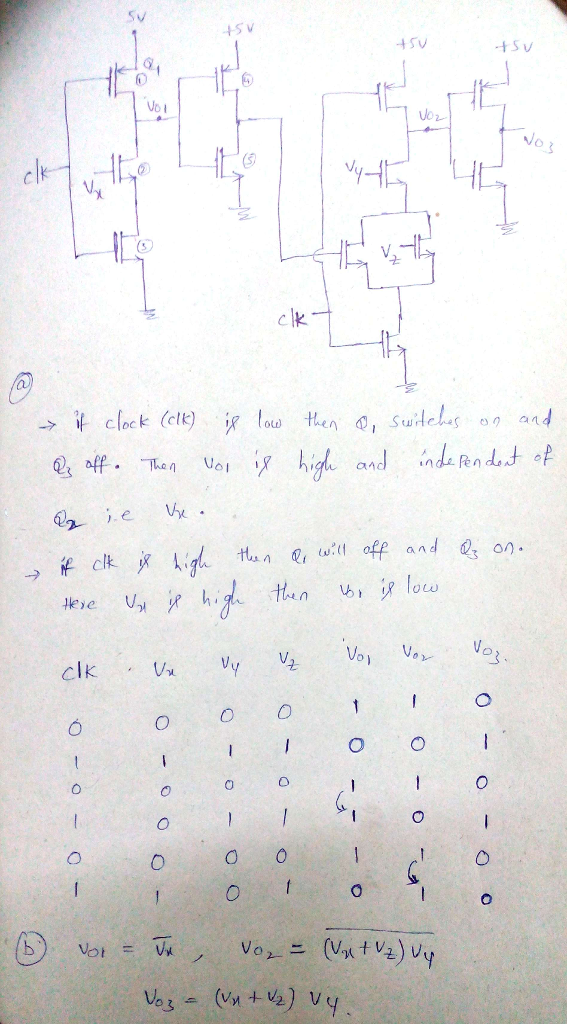 5V
+5V
+5V
+5V
Q1
①
④
Vo1
Vo2
Vo3
clk
Vx
②
⑤
Vy
③
Vz
clk
ⓐ
→ if clock (clk) is low then Q1 switches on and
Q3 off. Then Vo1 is high and independent of
Q2 i.e Vx.
→ if clk is high then Q1 will off and Q3 on.
Here Vx is high then Vo1 is low
clk Vx Vy Vz Vo1 Vo2 Vo3.
0 0 0 0 1 1 0
1 1 1 1 0 0 1
0 0 0 0 1 1 0
1 0 1 1 1 0 1
0 0 0 0 1 1 0
1 1 0 1 0 1 0
ⓑ Vo1 = V̅x̅ , Vo2 = \overline{(Vx + Vz) Vy}
Vo3 = (Vx + Vz) Vy.